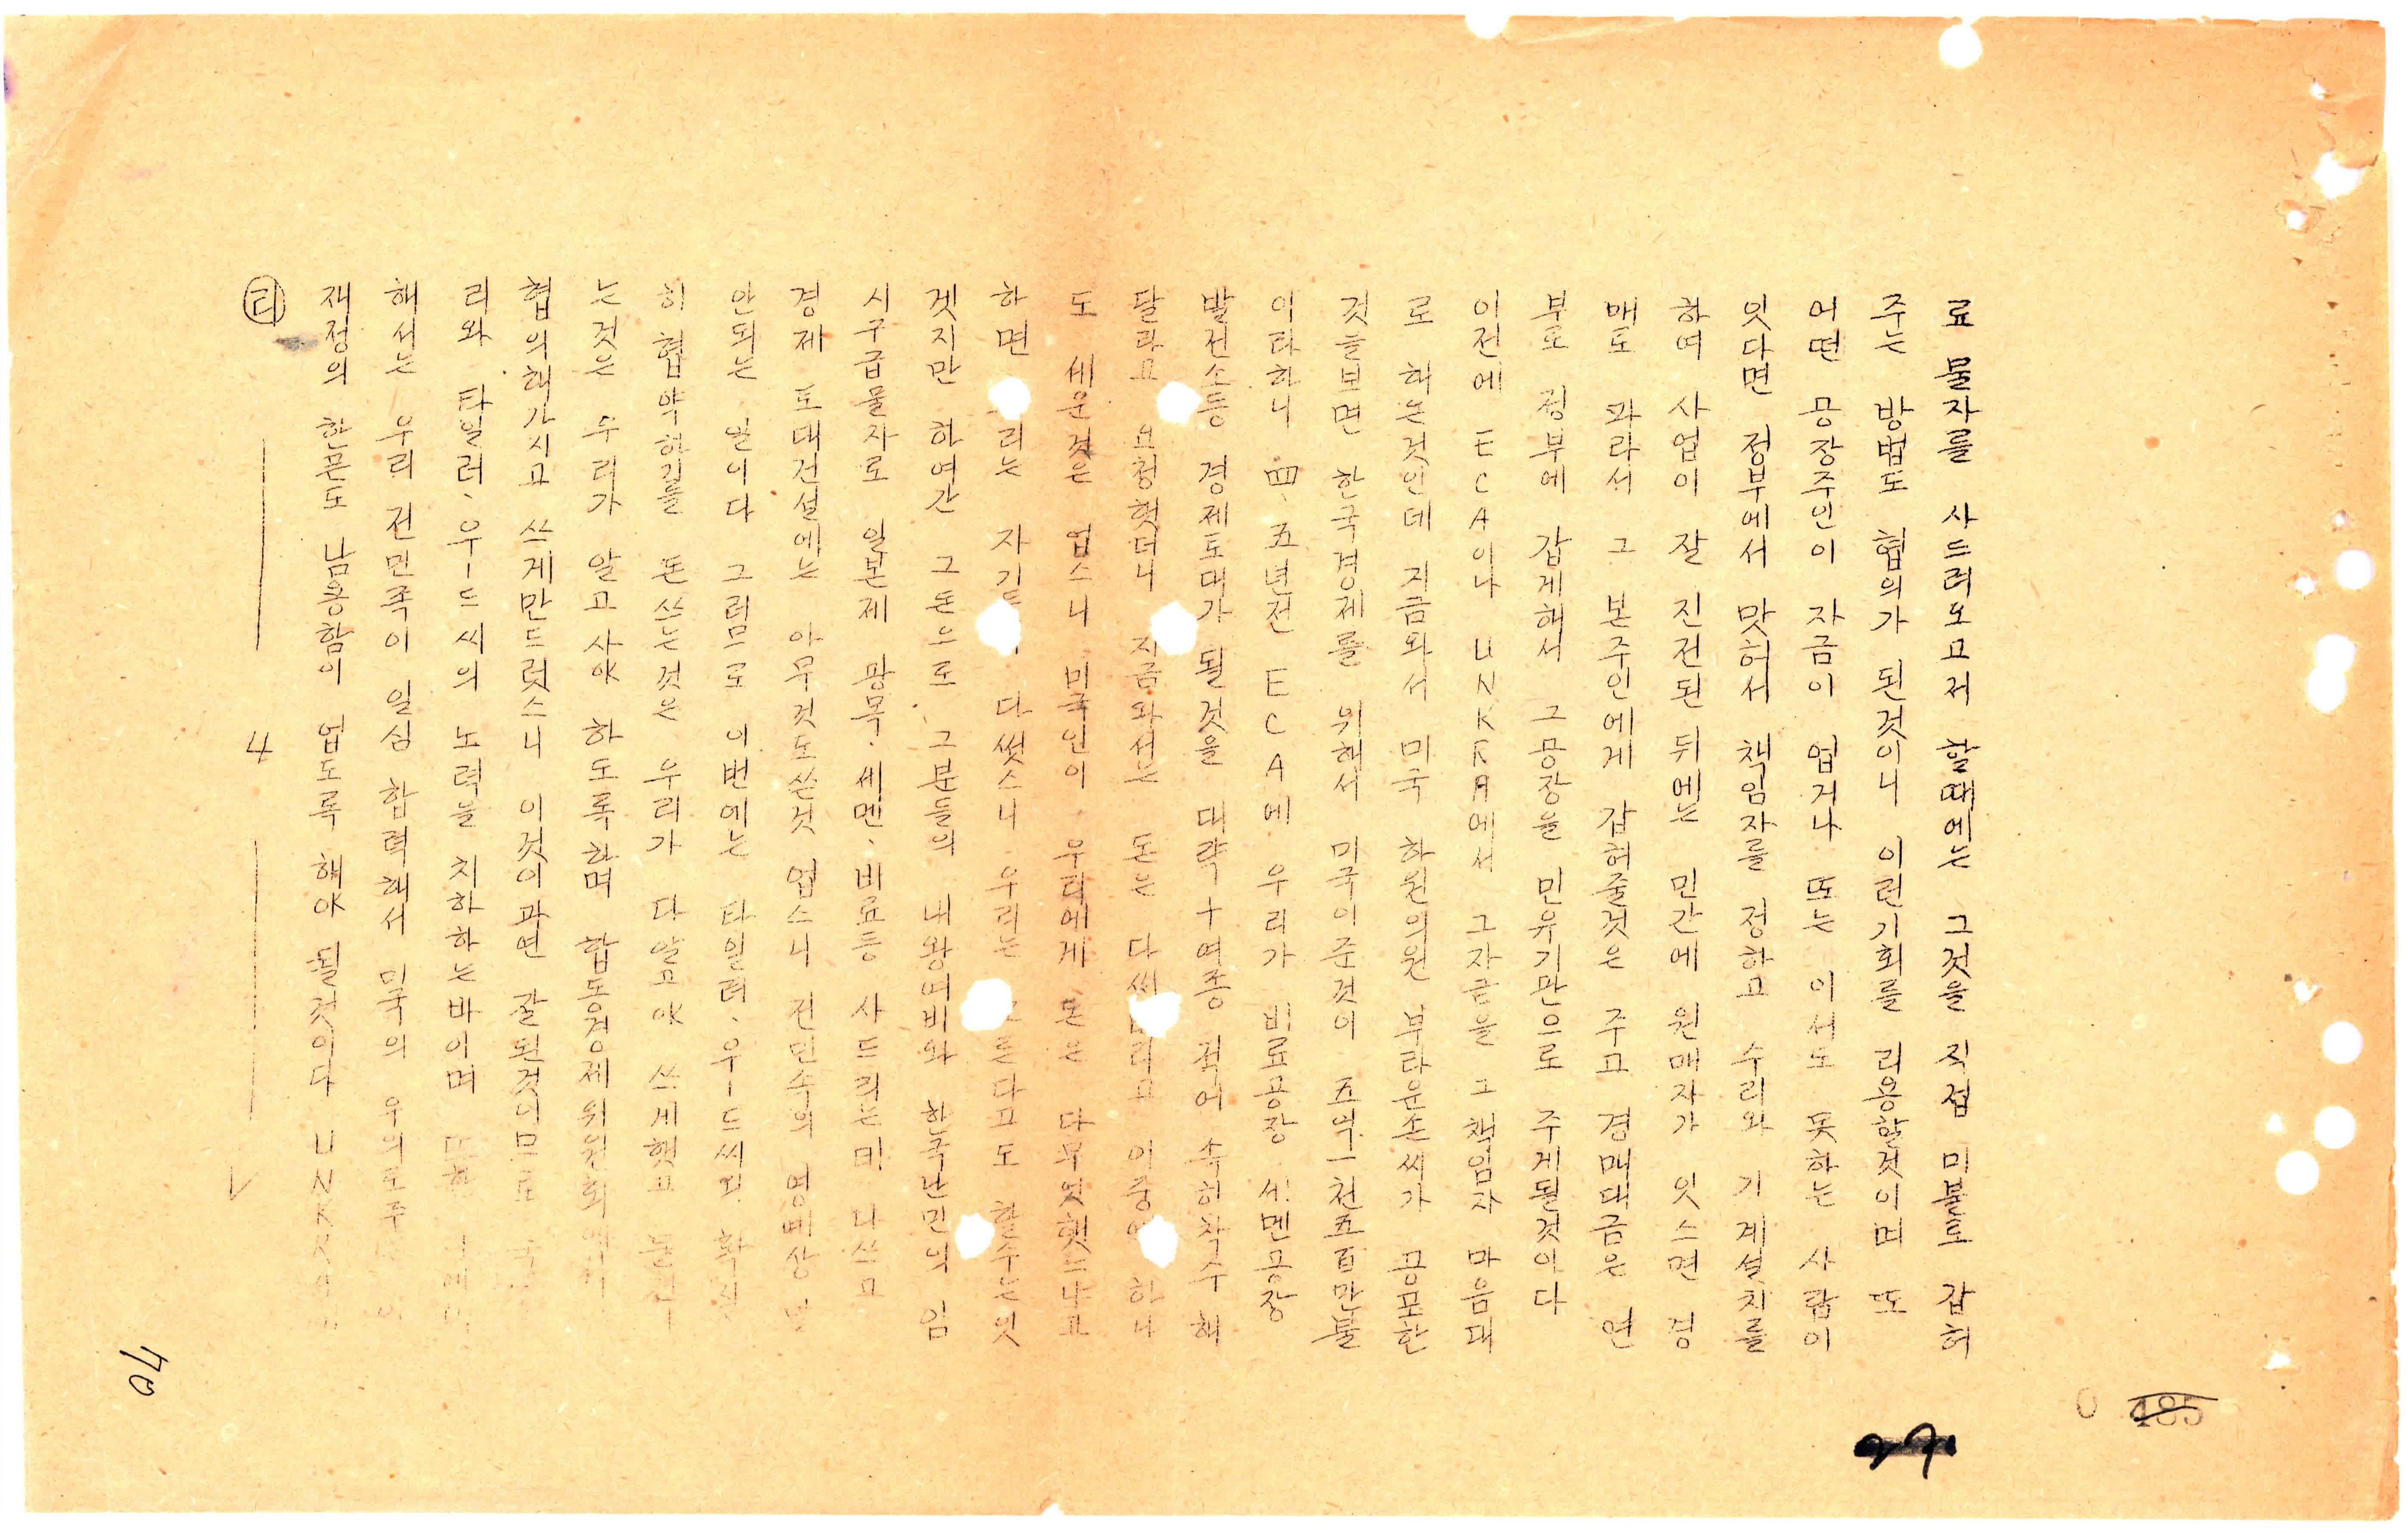 료 물자를 사드려오고저 할때에는 그것을 직접 미불도 갑허
주는 방법도 협의가 된것이니 이런기회를 리용할것이며 또
어떤 공장주인이 자금이 업거나 또는 이서도 못하는 사람이
잇다면 정부에서 맛허서 책임자를 정하고 수리와 기계설치를
하여 사업이 잘 진전된 뒤에는 민간에 원매자가 잇스면 경
매도 파라서 그 본주인에게 갑허줄것은 주고 경매대금은 연
부로 정부에 갑게해서 그공장을 민유기관으로 주게될것이다
이전에 ECA이나 UNKRA에서 그자금을 그 책임자 마음대
로 허는것인데 지금와서 미국 하원의원 부라운손씨가 공포한
것을보면 한국경제를 위해서 미국이준것이 五억一천五百만불
이라하니 四、五년전 ECA에 우리가 비료공장 세멘공장
발전소등 경제도대가 될것을 대략 十여종 적어 속히착수해
달라고 요청햇더니 지금와서는 돈은 다써 리고 이중에 하나
도 세운것은 업스니 미국인이 우리에게 돈은 다부엇햇드라고
하면 리는 자기 다썻스니 우리는 른다고도 할수는잇
겟지만 하여간 그돈으로 그분들의 내왕려비와 한국난민의 임
시구급물자로 일본제 광목、세멘、비료등 사드리는데 다쓰고
경제 도대건설에는 아무것도쓴것 업스니 전민족의 명예상
안되는 일이다 그럼므로 이번에는 타일러、우ㅡ드씨와 확실
히 협약한길를 돈쓰는것은 우리가 다알고야 쓰게햇고
는것은 우리가 알고사야 하도록하며 합동경제위원회에서
협의해가지고 쓰게만드럿스니 이것이과연 잘된것이므로
리와 타일러、우ㅡ드씨의 노력을 치하하는바이며 또한
해서는 우리 전민족이 일심 합력해서 미국의 우의로주
재정의 한푼도 남용함의 업도록 해야 될것이다 UNK
리
4
40
0 485
271